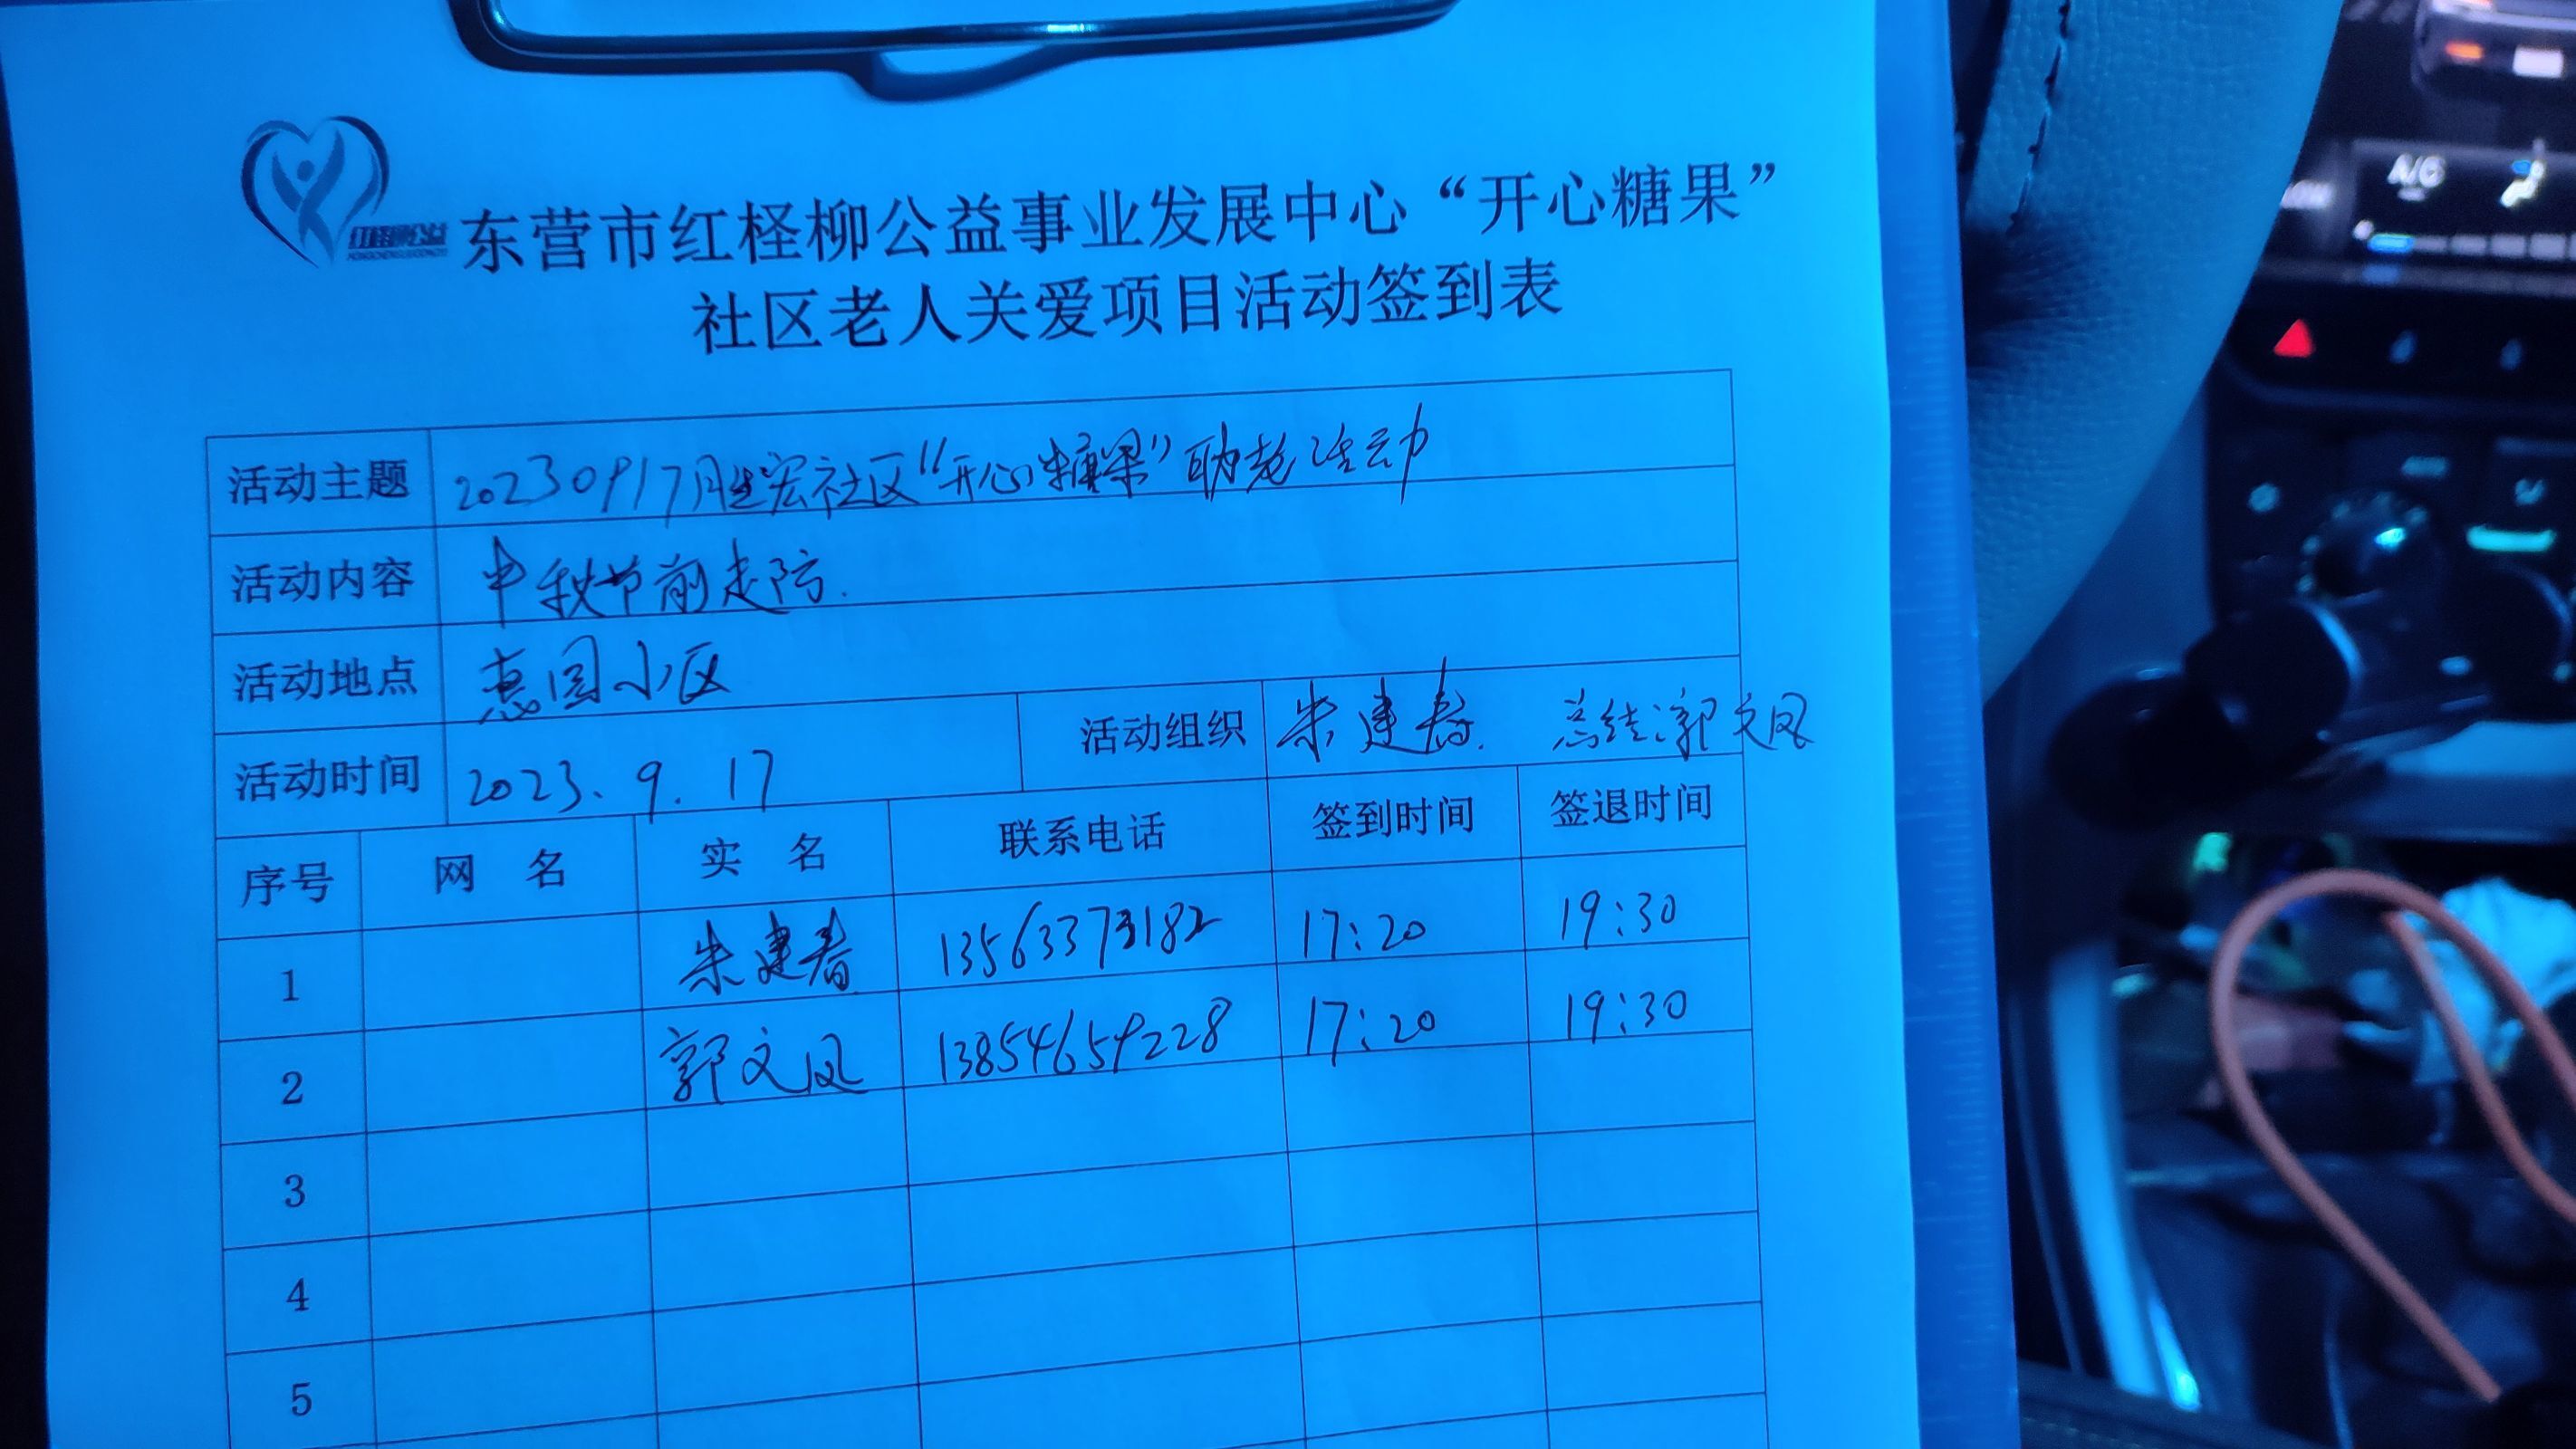 红柽柳公益
东营市红柽柳公益事业发展中心“开心糖果”
社区老人关爱项目活动签到表
活动主题 20230917月胜宏社区“开心糖果”助老活动
活动内容 中秋节前走访.
活动地点 惠园小区
活动时间 2023.9.17 活动组织 朱建春. 总结:郭文凤
序号 网 名 实 名 联系电话 签到时间 签退时间
1 朱建春 13563373182 17:20 19:30
2 郭文凤 13854659228 17:20 19:30
3
4
5
A/C